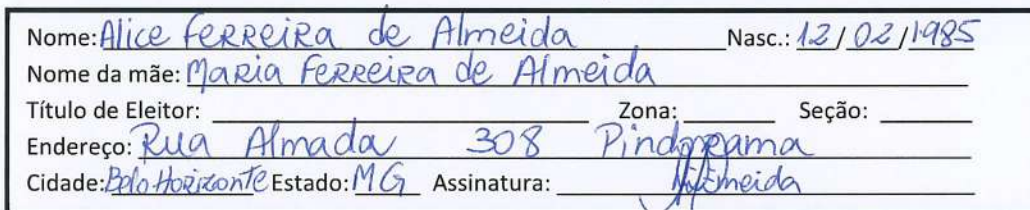 Nome: Alice Ferreira de Almeida Nasc.: 12/02/1985
Nome da mãe: Maria Ferreira de Almeida
Título de Eleitor: Zona: Seção:
Endereço: Rua Almada 308 Pindorama
Cidade: Belo Horizonte Estado: MG Assinatura: